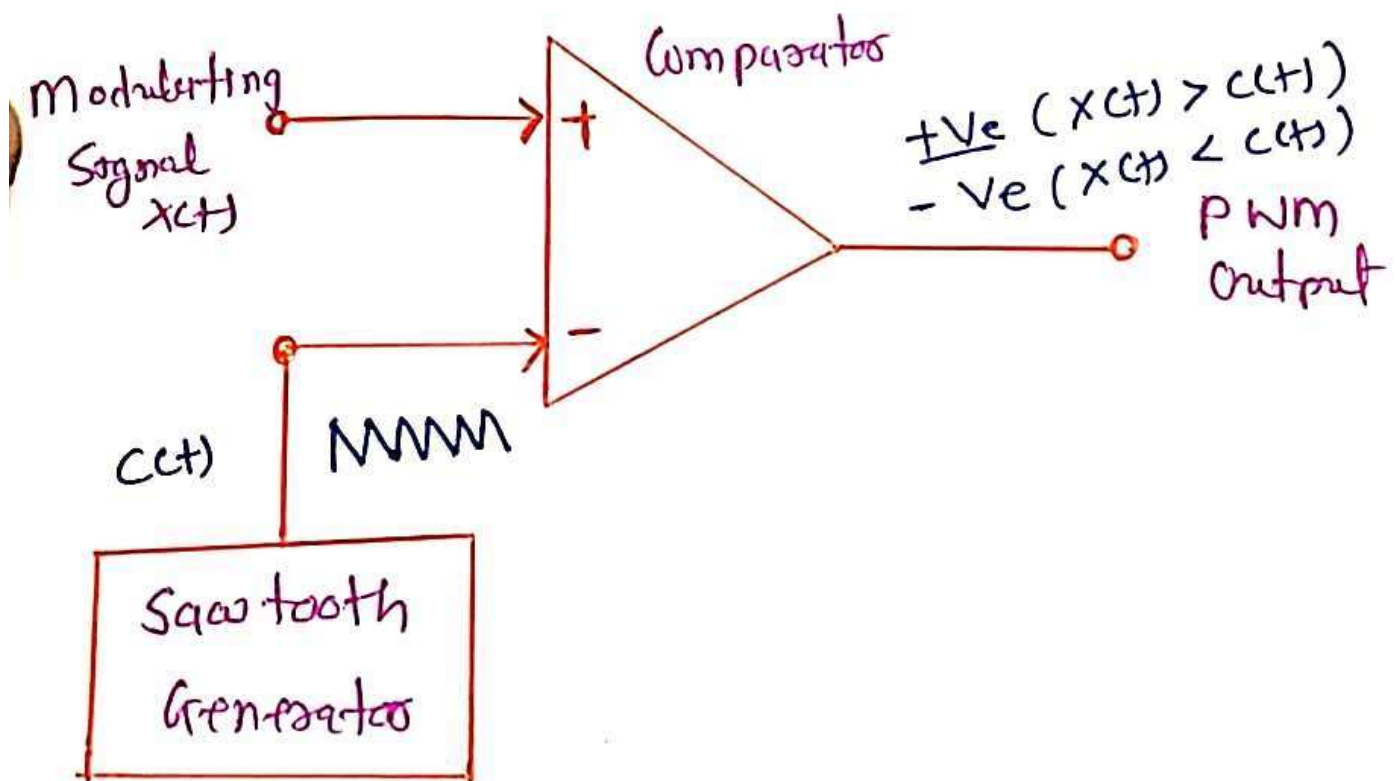 Modulating
Signal
x(t)
Comparator
+
-
+Ve (x(t) > c(t))
- Ve (x(t) < c(t))
PWM
Output
c(t)
Sawtooth
Generator